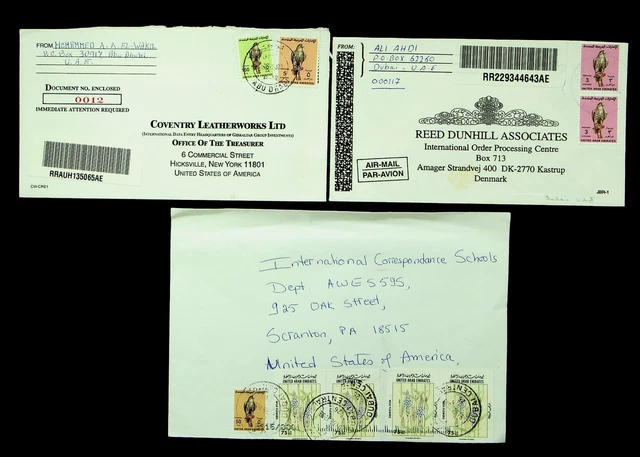 FROM: MOHAMMED A. A. EL-WAKIL
P.O. Box 30917 Abu Dhabi
U.A.E
DOCUMENT NO. ENCLOSED
0012
IMMEDIATE ATTENTION REQUIRED
RRAUH135065AE
CW-CRE1
COVENTRY LEATHERWORKS LTD
(INTERNATIONAL DATA ENTRY HEADQUARTERS OF GIBRALTAR GROUP INVESTMENTS)
OFFICE OF THE TREASURER
6 COMMERCIAL STREET
HICKSVILLE, NEW YORK 11801
UNITED STATES OF AMERICA
ABU DHABI
FROM:
ALI AHDI
P.O BOX 62260
Dubai - U.A.E
000117
RR229344643AE
3
3
REED DUNHILL ASSOCIATES
International Order Processing Centre
Box 713
Amager Strandvej 400 DK-2770 Kastrup
Denmark
AIR-MAIL
PAR-AVION
JBR-1
International Correspondance Schools
Dept AWE5595,
925 OAK Street,
Scranton, PA 18515
United States of America
UNITED ARAB EMIRATES
UNITED ARAB EMIRATES
UNITED ARAB EMIRATES
UNITED ARAB EMIRATES
50
75
75
75
75
DUBAI CENTRAL